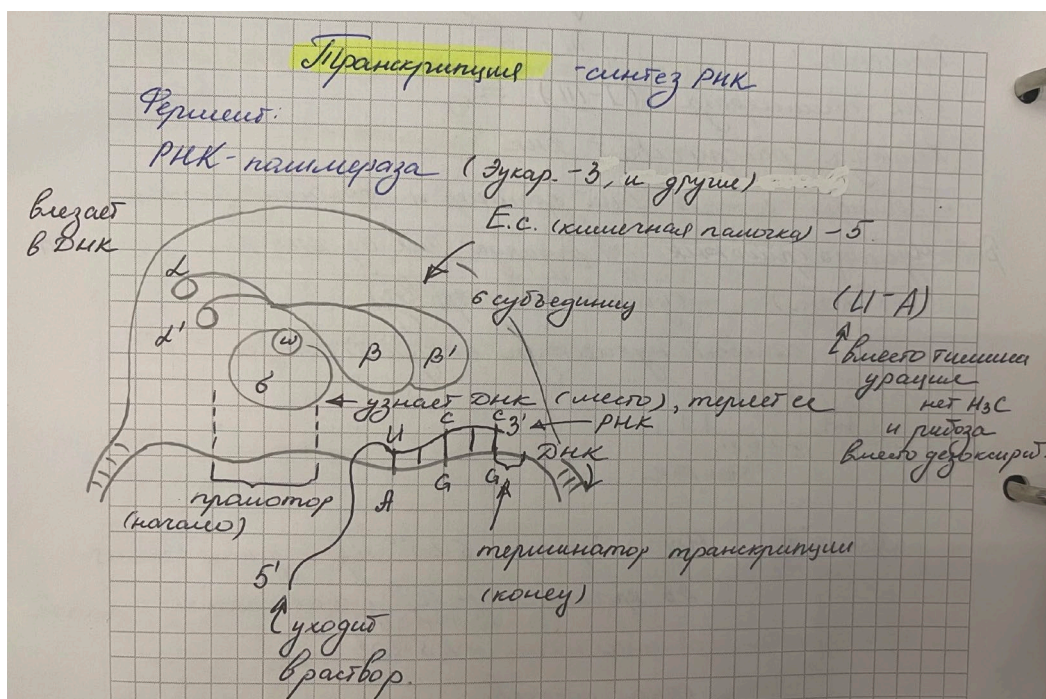 Транскрипция - синтез РНК
Фермент:
РНК-полимераза (Эукар. -3, и другие)
E.c. (кишечная палочка) - 5.
влезает
в ДНК
6 субъединиц
α
α'
ω
σ
β
β'
(U-A)
вместо тимина
урацил
нет H₃C
и рибоза
вместо дезоксириб.
узнаёт ДНК (место), теряет её
U C C 3' РНК
ДНК
A G G A
промотор
(начало)
терминатор транскрипции
(конец)
5'
уходит
в раствор.